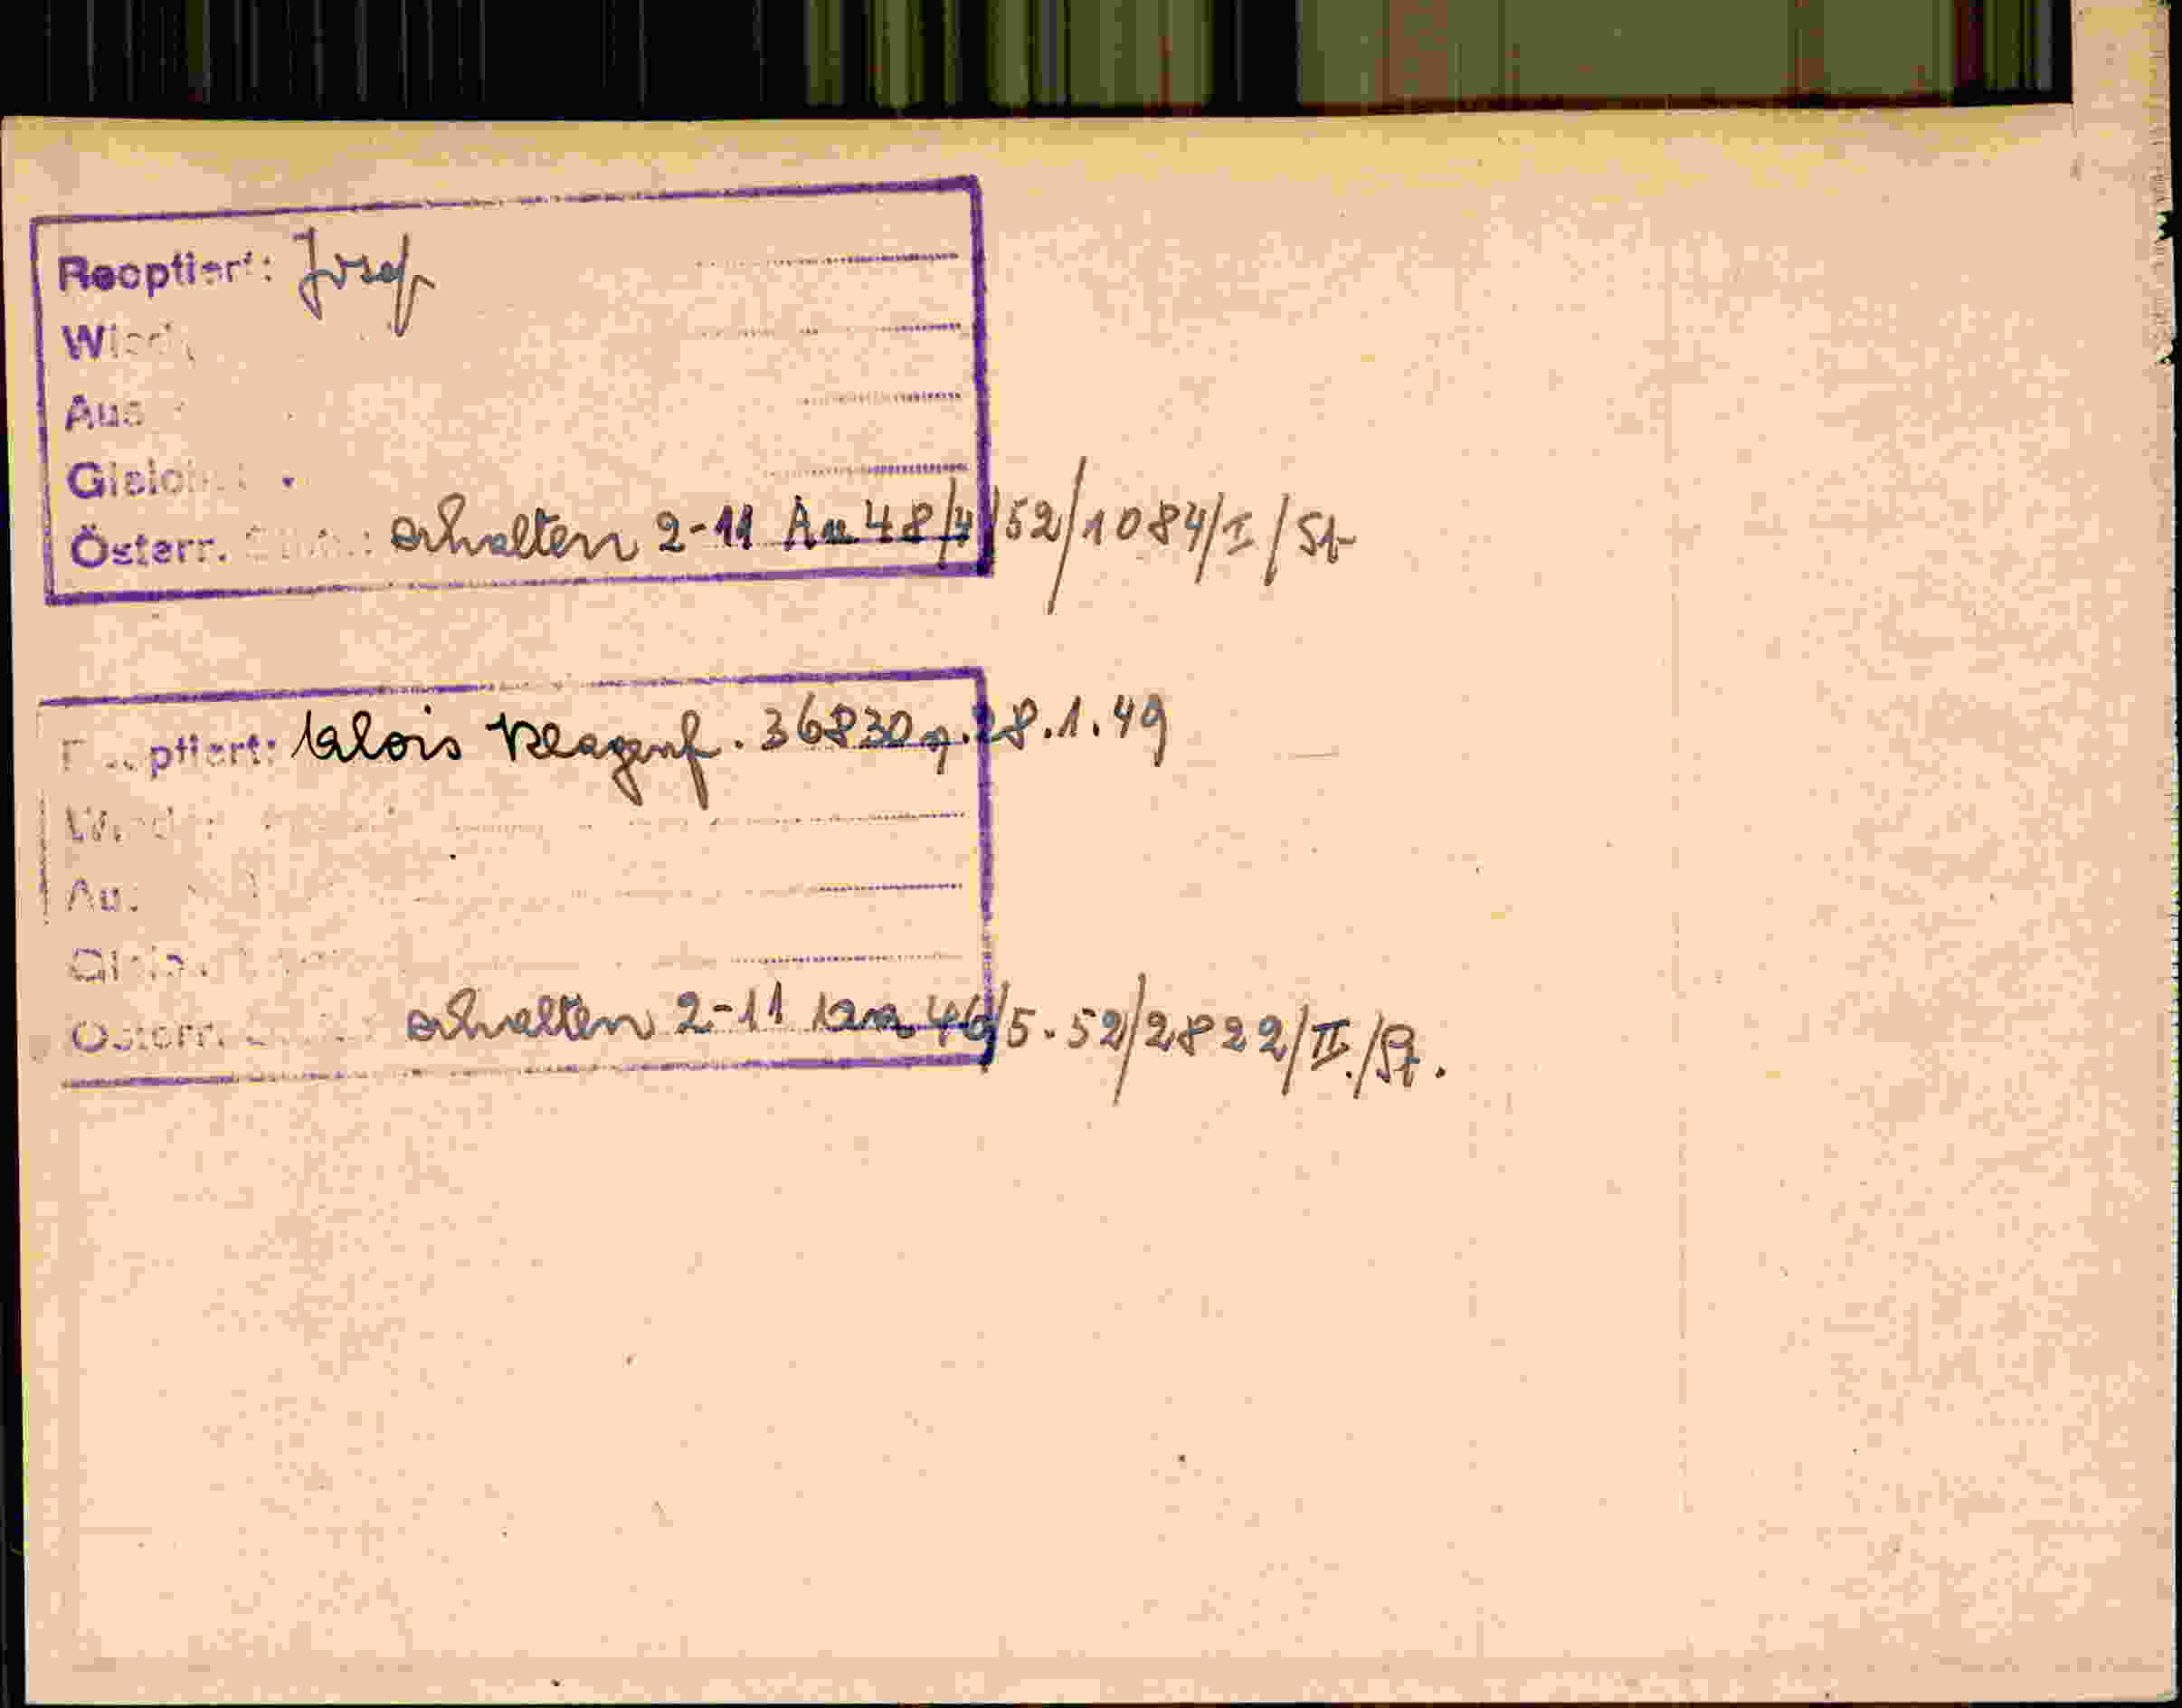 Reoptiert: Josef
Wied
Aus
Gleich
Österr. erhalten 2-11 An 48/4/52/1084/I/St
ptiert: Alois Klagenf. 36830 g. 28.1.49
Wied
Au
Österr. erhalten 2-11 5.52/2822/II./St.